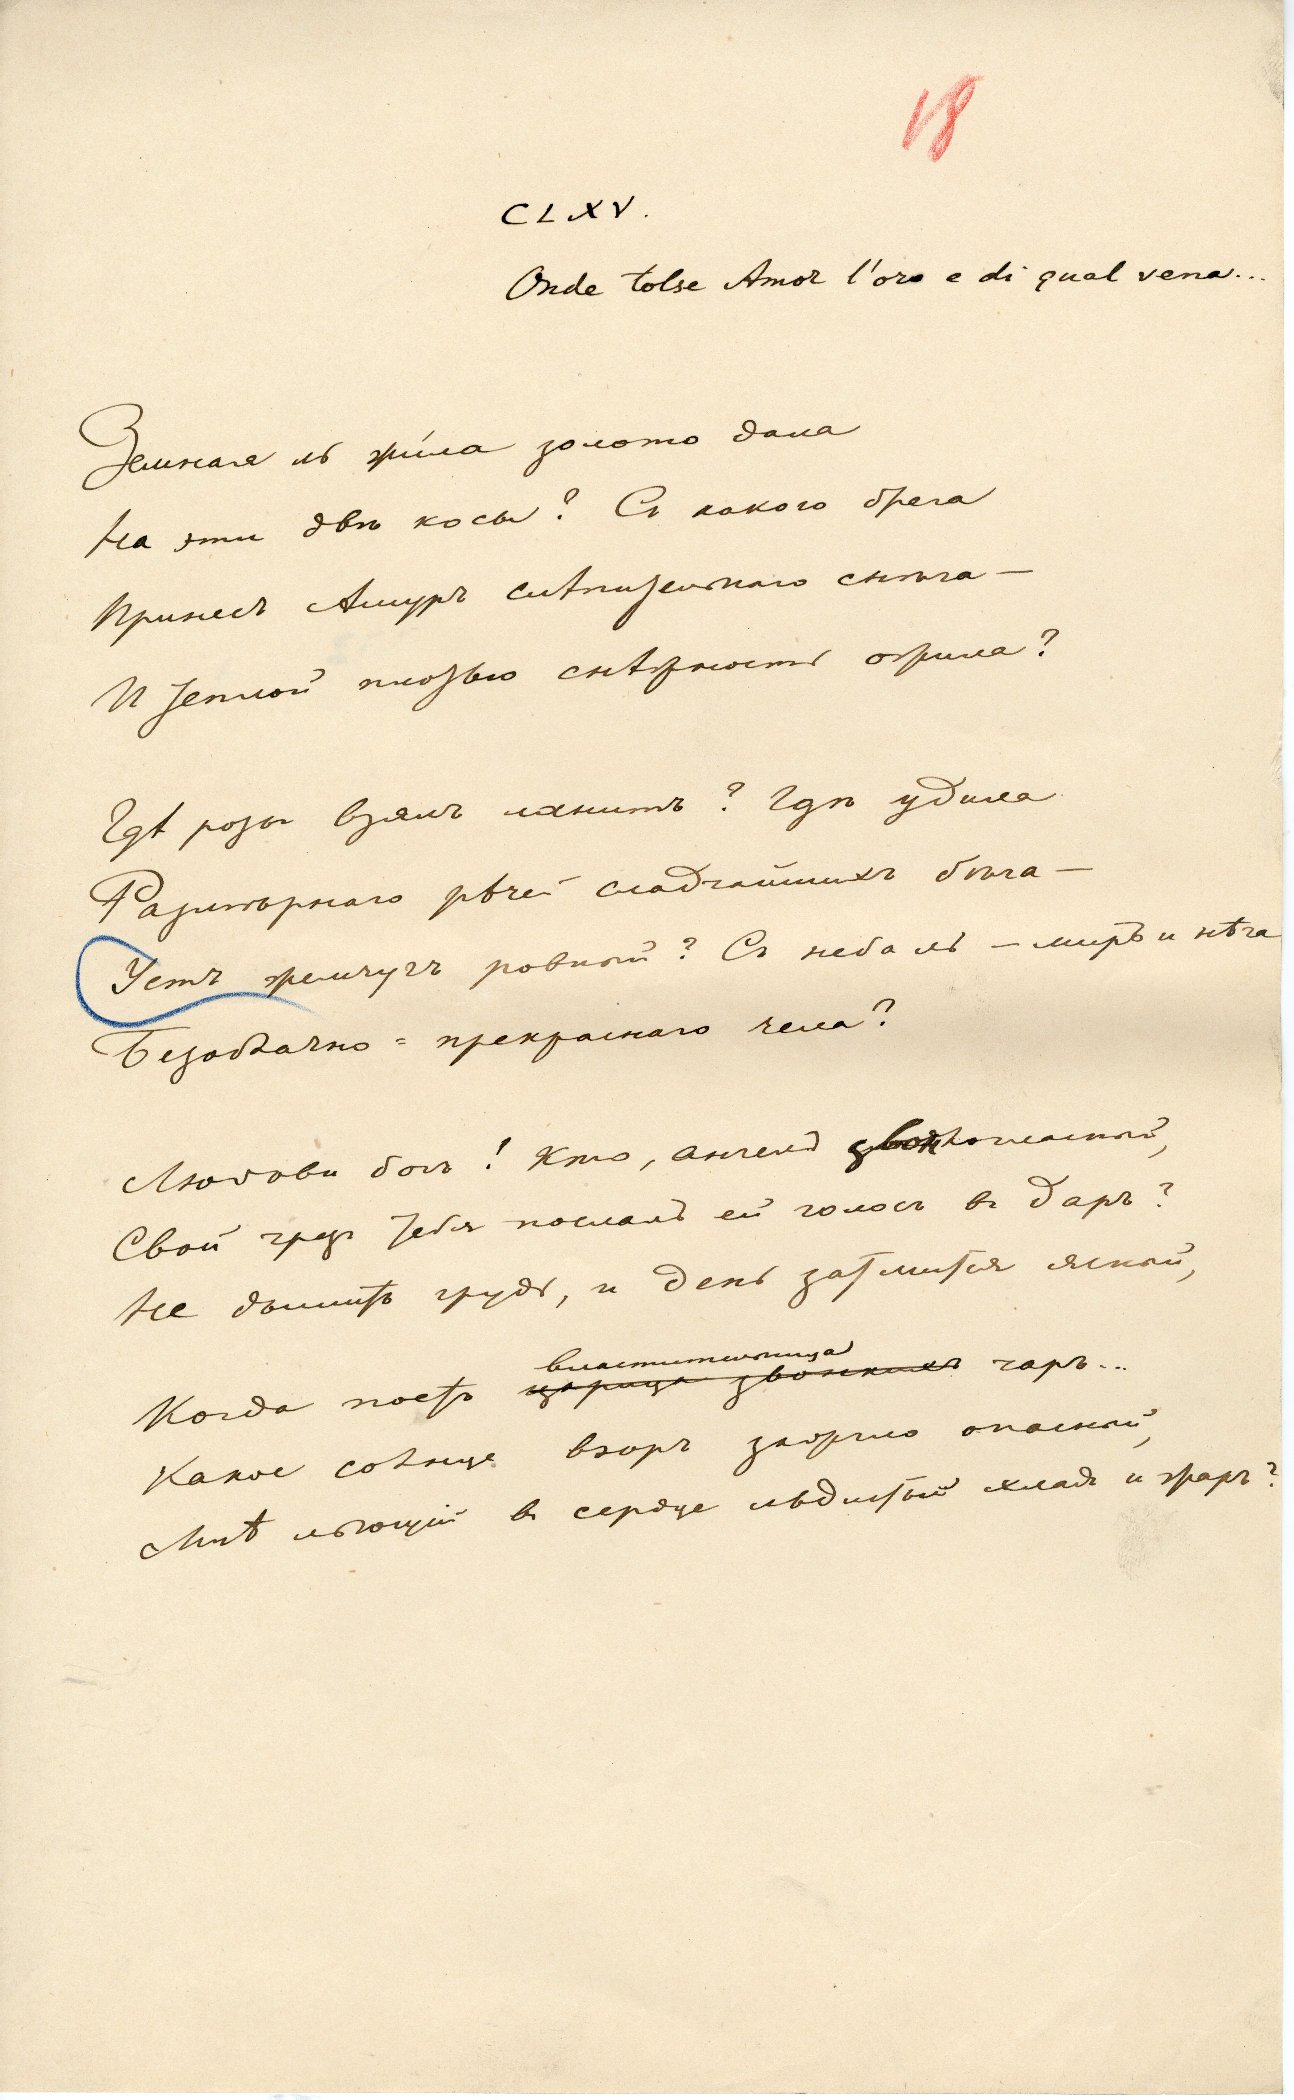 18
CLXV.
Onde tolse Amor l'oro e di qual vena...
Земная ль жила золото дала
На эти двѣ косы? Съ какого брега
Принесъ Амуръ слѣпительнаго снѣга—
И теплой плотью снѣжность ожила?
Гдѣ розы взялъ ланитъ? Гдѣ удила
Размѣрнаго рѣчей сладчайшихъ бѣга—
Устъ жемчугъ ровный? Съ неба ль — миръ и нѣга
Безоблачно-прекраснаго чела?
Любови богъ! Кто, ангелъ звонкогласный,
Свой чрезъ тебя послалъ ей голосъ въ даръ?
Не дышитъ грудь, и день затмится ясный,
властительница
Когда поетъ царица звонкихъ чаръ...
Какое солнце взоръ зажгло опасный,
Мнѣ льющій въ сердце льдистый хладъ и жаръ?